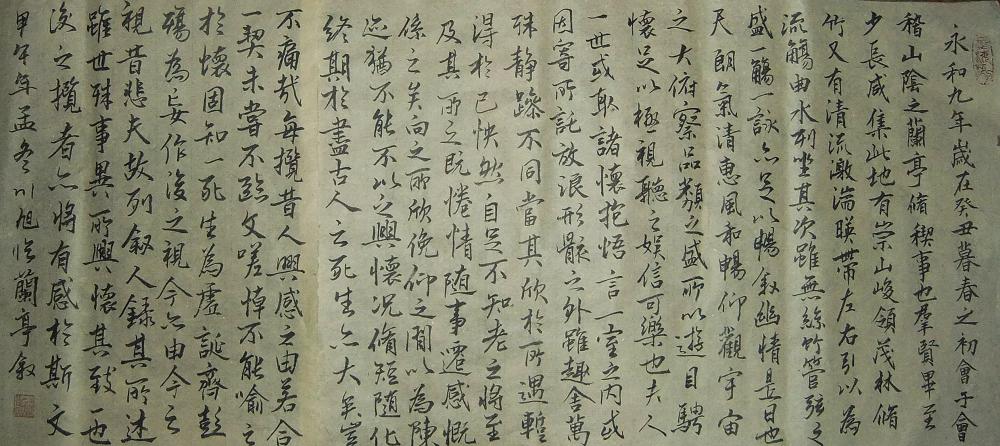 永和九年歲在癸丑暮春之初會于會
稽山陰之蘭亭脩稧事也羣賢畢至
少長咸集此地有崇山峻領茂林脩
竹又有清流激湍暎帶左右引以為
流觴曲水列坐其次雖無絲竹管弦之
盛一觴一詠亦足以暢敘幽情是日也
天朗氣清惠風和暢仰觀宇宙
之大俯察品類之盛所以遊目騁
懷足以極視聽之娛信可樂也夫人
一世或取諸懷抱悟言一室之內或
因寄所託放浪形骸之外雖趣舍萬
殊静躁不同當其欣於所遇蹔
得於己怏然自足不知老之將至
及其所之既惓情随事遷感慨
係之矣向之所欣俛仰之閒以為陳
迹猶不能不以之興懷況脩短随化
終期於盡古人云死生亦大矣豈
不痛哉每攬昔人興感之由若合
一契未嘗不臨文嗟悼不能喻之
於懷固知一死生為虛誕齊彭
殤為妄作後之視今亦由今之
視昔悲夫故列敘人錄其所述
雖世殊事異所興懷其致一也
後之攬者亦將有感於斯文
甲午年孟冬川旭臨蘭亭敘